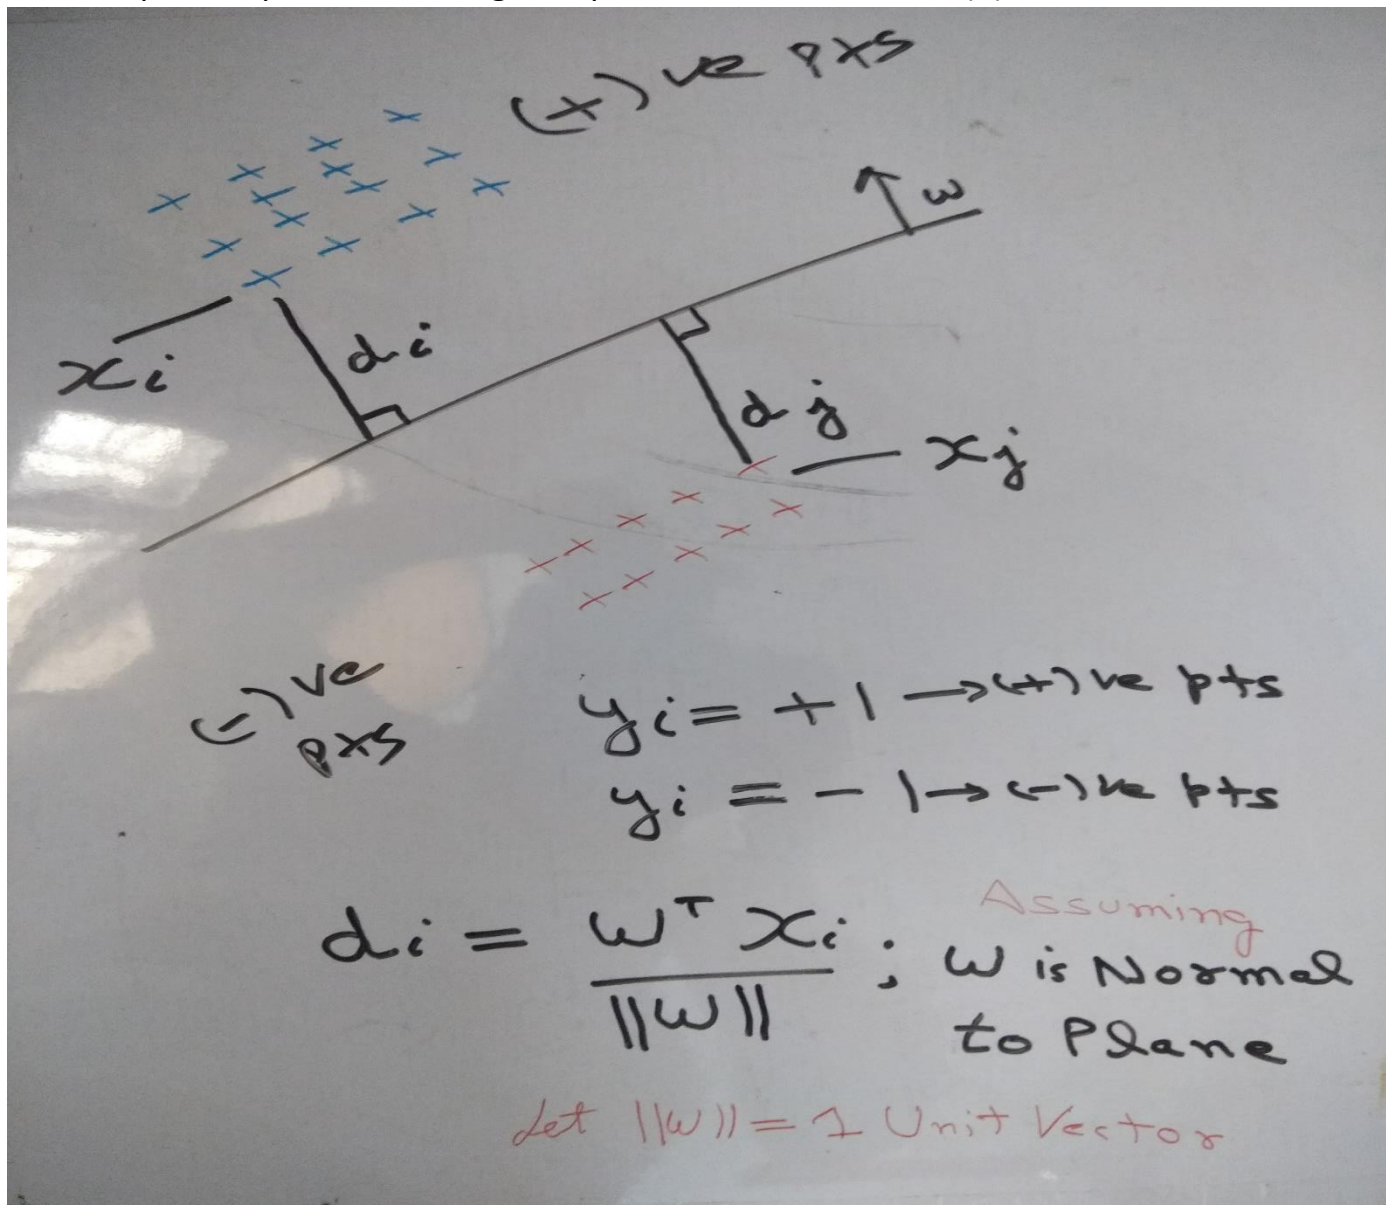 (+)ve pts
w
xi
di
dj
xj
(-)ve
pts
yi = +1 → (+)ve pts
yi = -1 → (-)ve pts
di = wᵀ xi / ||w|| ; Assuming
w is Normal
to Plane
Let ||w|| = 1 Unit Vector